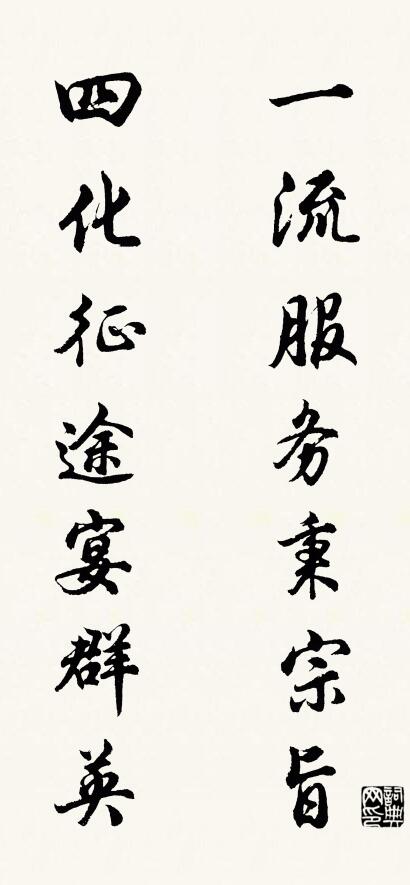 一流服务秉宗旨
四化征途宴群英
詞典网印